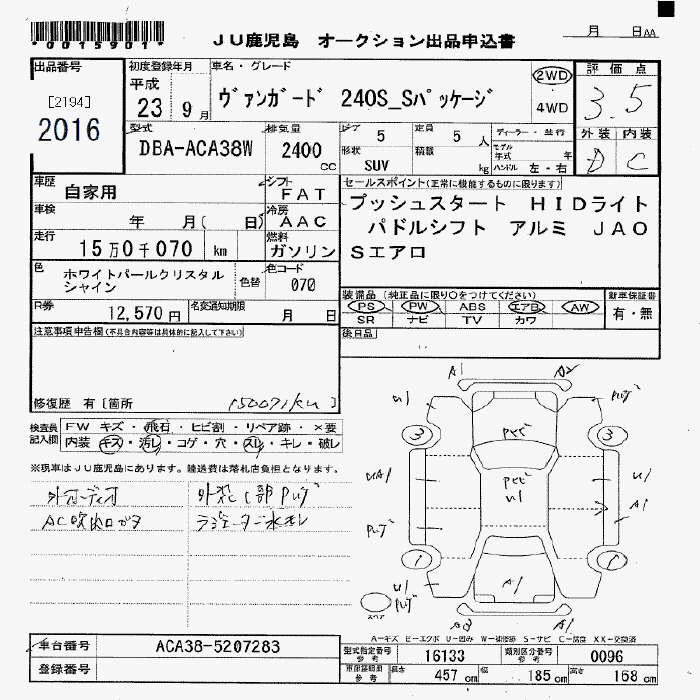 *0015901*
JU鹿児島 オークション出品申込書
月 日 AA
出品番号
[2194]
2016
初度登録年月
平成
23 9月
車名・グレード
ヴァンガード 240S_Sパッケージ
2WD
4WD
評価点
3.5
外装 内装
D C
型式
DBA-ACA38W
排気量
2400 cc
ドア 5
定員 5人
形状 SUV
積載 kg
ディーラー・並行
モデル年式 年
ハンドル 左・右
車歴
自家用
シフト
FAT
車検
年 月( 日)
冷房
AAC
走行
15万0千070 km
燃料
ガソリン
セールスポイント(正常に機能するものに限ります)
プッシュスタート HIDライト
パドルシフト アルミ JAO
Sエアロ
色
ホワイトパールクリスタル
シャイン
色替
色コード
070
R券
12,570円
名変通知期限
月 日
装備品(純正品に限り○をつけてください)
PS PW ABS エアB AW
SR ナビ TV カワ
新車保証書
有・無
注意事項申告欄(不具合内容等は具体的に記入して下さい)
後日品
修復歴 有[箇所 150071km]
検査員
記入欄
FW キズ・飛石・ヒビ割・リペア跡・×要
内装 キズ・汚レ・コゲ・穴・スレ・キレ・破レ
※現車はJU鹿児島にあります。陸送費は落札店負担となります。
外オーディオ
AC吹出口ガタ
ラジエーター水モレ
A1 A2
U1
3 3
U1
A1
1 1
U1
A1
A3 A1
スペア
A-キズ E-エクボ U-凹み W-補修跡 S-サビ C-腐食 XX-交換済
車台番号
ACA38-5207283
登録番号
型式指定番号
参考
16133
類別区分番号
参考
0096
車両諸範囲
参考
長さ 457cm
幅 185cm
高さ 168cm